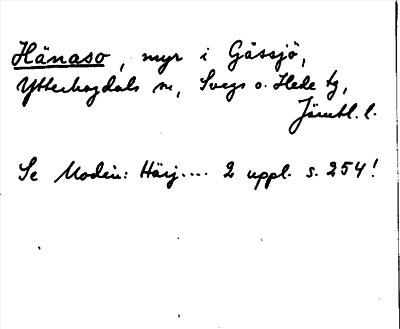 Hänaso, myr i Gåssjö,
Ytterhogdals sn, Svegs o. Hede tg,
Jämtl. l.
Se Modin: Härj.... 2 uppl. s. 254!